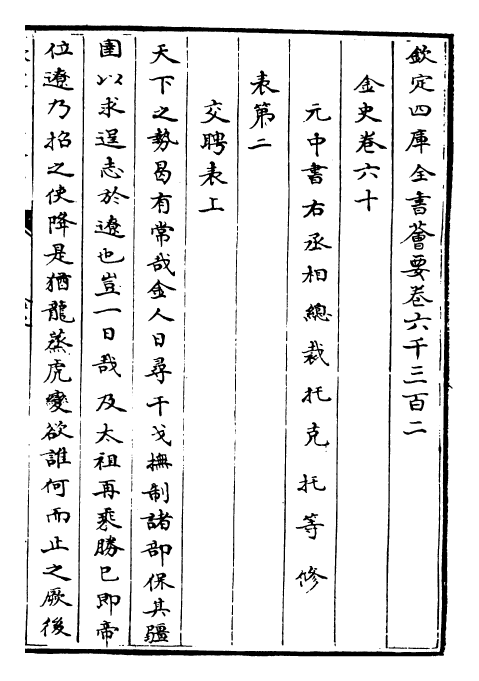 欽定四庫全書薈要卷六千三百二
金史卷六十
元中書右丞相總裁托克托等修
表第二
交聘表上
天下之勢曷有常哉金人日尋干戈撫制諸部保其疆
圉以求逞志於遼也豈一日哉及太祖再乘勝已即帝
位遼乃招之使降是猶龍蒸虎變欲誰何而止之厥後